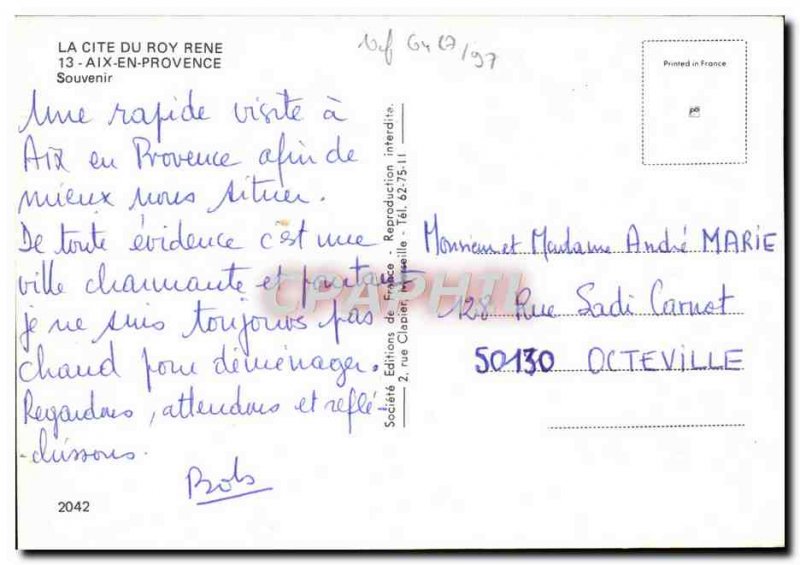 LA CITE DU ROY RENE
13 - AIX-EN-PROVENCE
Souvenir
Une rapide visite à
Aix en Provence afin de
mieux nous situer.
De toute évidence c'est une
ville charmante et pourtant
je ne suis toujours pas
chaud pour déménager.
Regardons, attendons et réflé-
-chissons.
Bob
2042
Société Editions de France - Reproduction interdite.
2, rue Clapier, Marseille - Tél. 62-75-11
Printed in France
Monsieur et Madame André MARIE
128 Rue Sadi Carnot
50130 OCTEVILLE
CPAPHIL